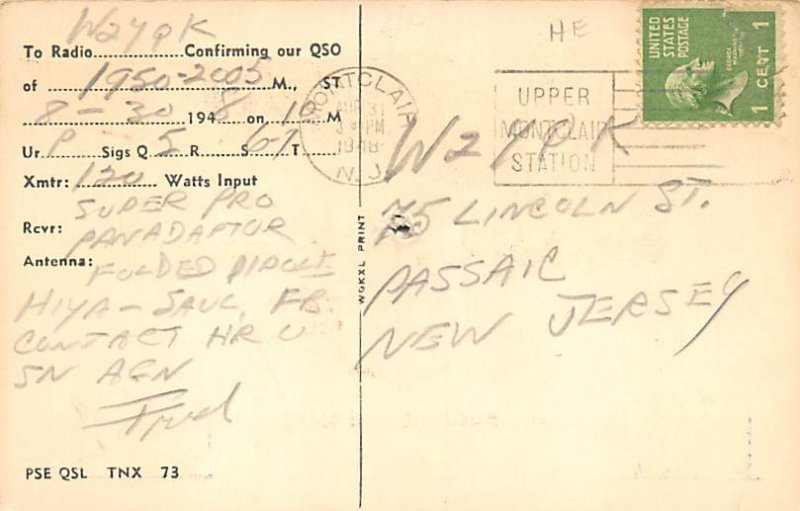 W2YQK
To Radio..............Confirming our QSO
of 1950-2005 M., ST
8-30 1948 on 10 M
Ur P Sigs Q 5 R S 6-7 T
Xmtr: 120 Watts Input
SUPER PRO
Rcvr: PANADAPTOR
Antenna: FOLDED DIPOLE
HIYA - SAUL, FB
CONTACT HR U
SN AGN
Fred
PSE QSL TNX 73
W6KXL PRINT
HE
MONTCLAIR
AUG 31
1948
N.J.
UPPER
MONTCLAIR
STATION
UNITED
STATES
POSTAGE
1 CENT 1
W2YQK
75 LINCOLN ST.
PASSAIC
NEW JERSEY